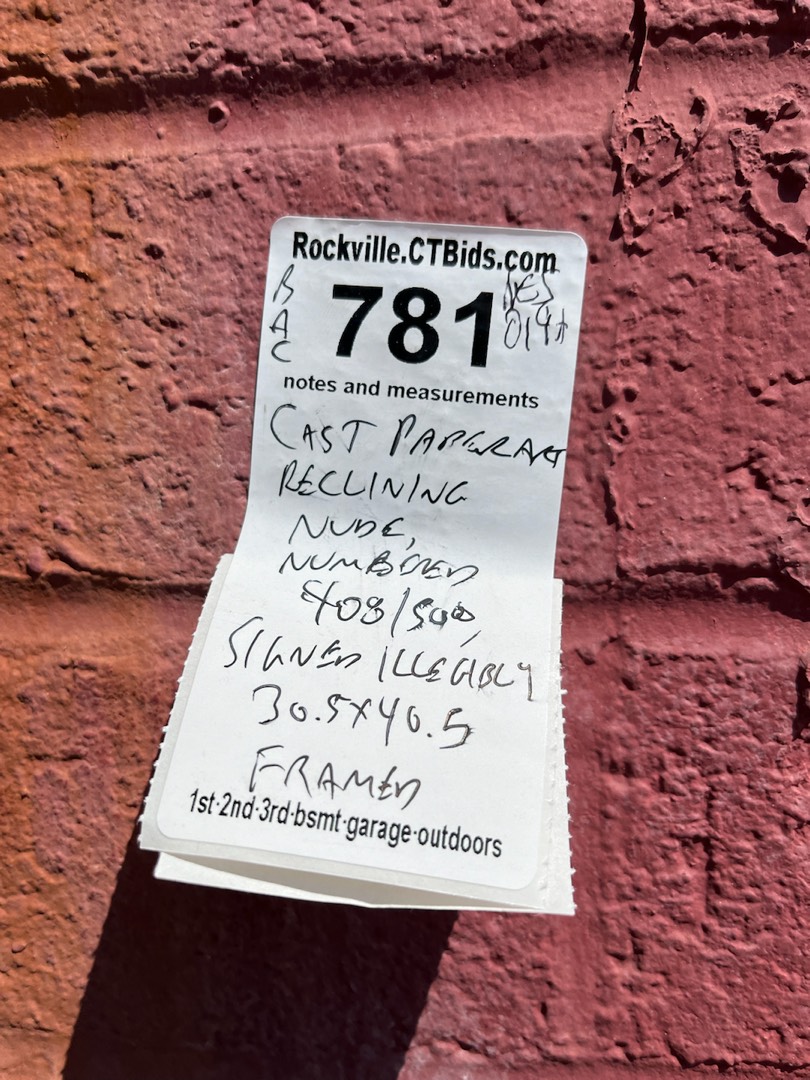 Rockville.CTBids.com
BAC
781
notes and measurements
CAST PAPER ART
RECLINING
NUDE,
NUMBERED
408/500,
SIGNED ILLEGIBLY
30.5X40.5
FRAMED
1st·2nd·3rd·bsmt·garage·outdoors